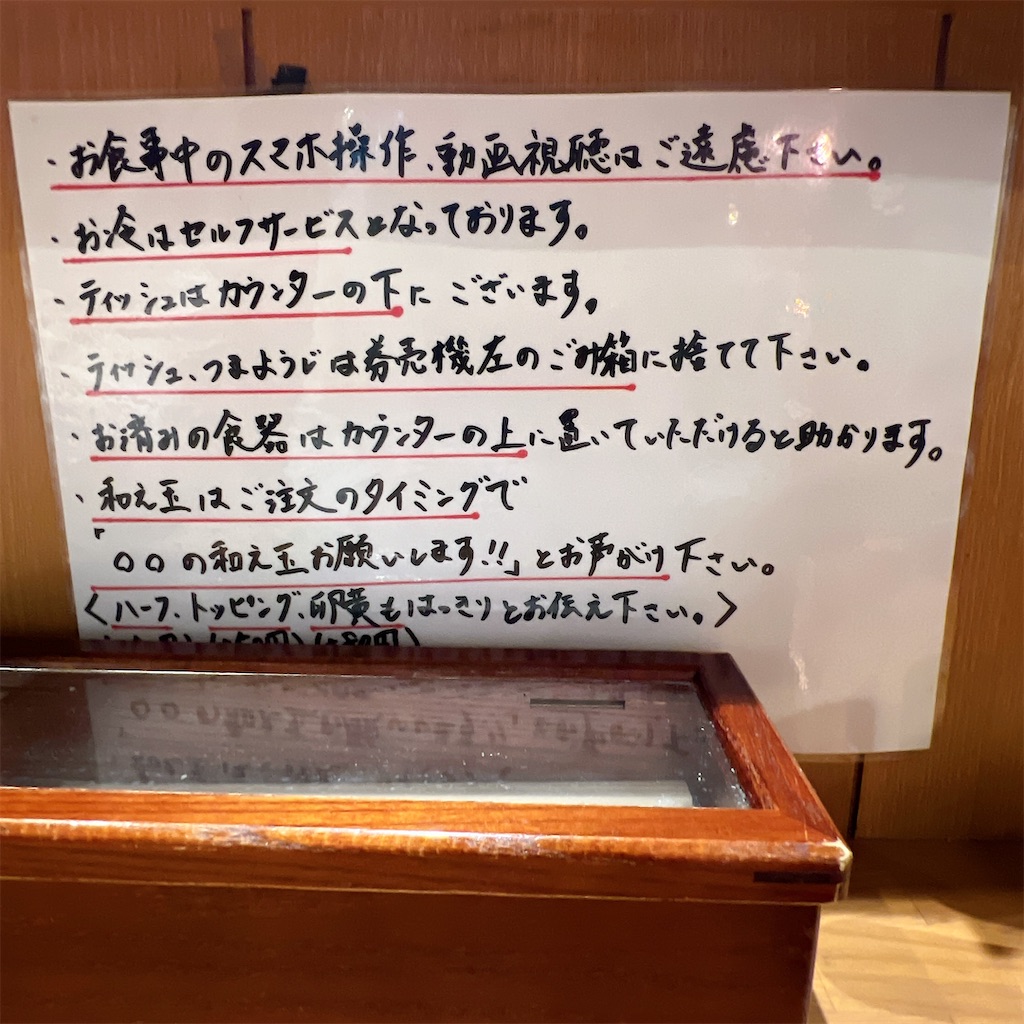 ・お食事中のスマホ操作、動画視聴はご遠慮下さい。
・お冷はセルフサービスとなっております。
・ティッシュはカウンターの下にございます。
・ティッシュ、つまようじは券売機左のごみ箱に捨てて下さい。
・お済みの食器はカウンターの上に置いていただけると助かります。
・和え玉はご注文のタイミングで
「〇〇の和え玉お願いします!!」とお声がけ下さい。
〈ハーフ、トッピング、卵黄もはっきりとお伝え下さい。〉